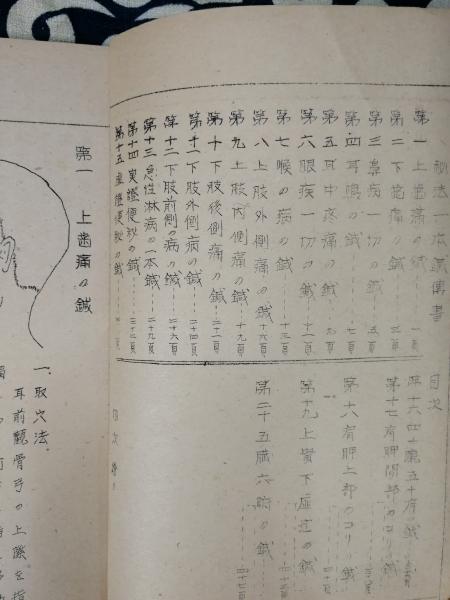 秘法一本鍼傳書
目次
第一 上歯痛の鍼 一頁
第二 下歯痛の鍼 三頁
第三 鼻病一切の鍼 五頁
第四 耳鳴の鍼 七頁
第五 耳中疼痛の鍼 九頁
第六 眼疾一切の鍼 十一頁
第七 喉の病の鍼 十三頁
第八 上肢外側痛の鍼 十六頁
第九 上肢内側痛の鍼 十九頁
第十 下肢後側痛の鍼 二十一頁
第十一 下肢外側病の鍼 二十四頁
第十二 下肢前側の病の鍼 二十六頁
第十三 急性淋病の一本鍼 二十九頁
第十四 実證便秘の鍼 三十二頁
第十五 虚證便秘の鍼
第十六 四十腕五十肩の鍼
第十七 肩胛間部のコリの鍼
第十八 肩胛上部のコリの鍼
第十九 上実下虚症の鍼
第二十 五臓六腑の鍼
目次 終り
第一 上歯痛の鍼
一、取穴法.
耳前顴骨弓の上際を指